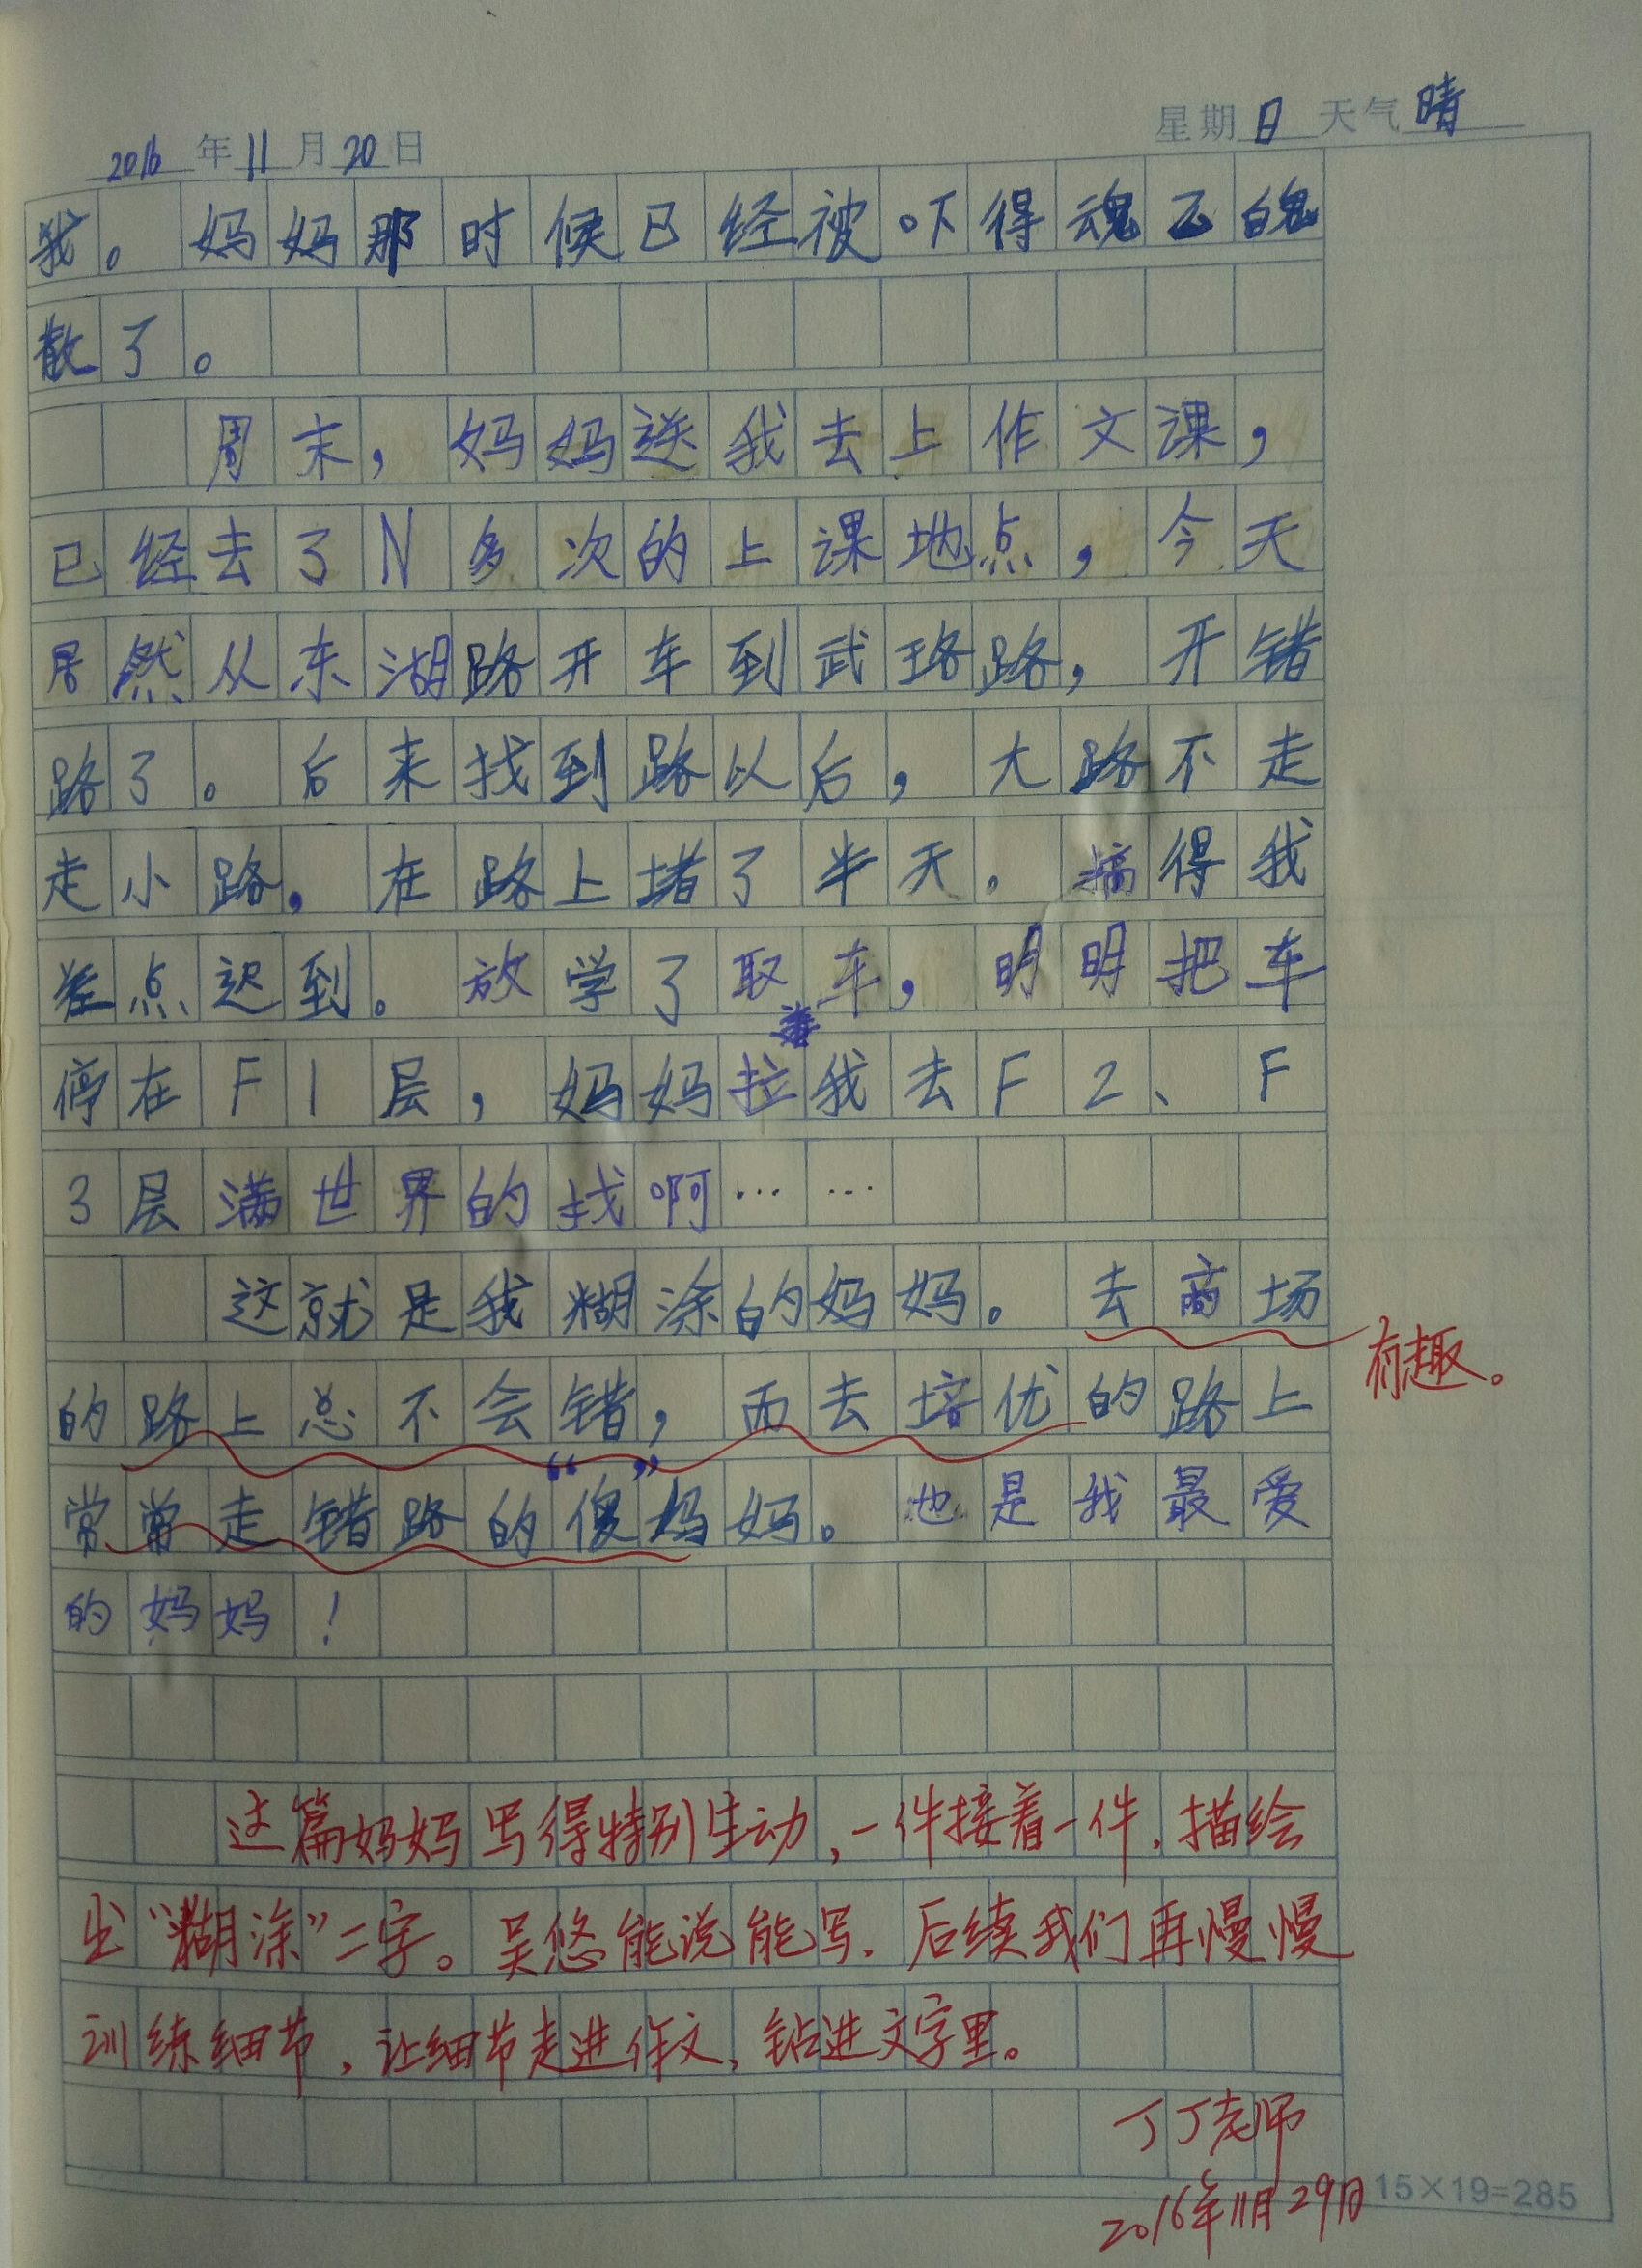 2016年11月20日 星期日 天气晴
我。妈妈那时候已经被吓得魂飞魄
散了。
周末，妈妈送我去上作文课，
已经去了N多次的上课地点，今天
居然从东湖路开车到武珞路，开错
路了。后来找到路以后，大路不走
走小路，在路上堵了半天。搞得我
差点迟到。放学了取车，明明把车
停在F1层，妈妈拉我去F2、F
3层满世界的找啊……
这就是我糊涂的妈妈。去商场
的路上总不会错，而去培优的路上
有趣。
常常走错路的“傻”妈妈。也是我最爱
的妈妈！
这篇妈妈写得特别生动，一件接着一件，描绘
出“糊涂”二字。吴悠能说能写，后续我们再慢慢
训练细节，让细节走进作文，钻进文字里。
丁丁老师
2016年11月29日
15×19=285